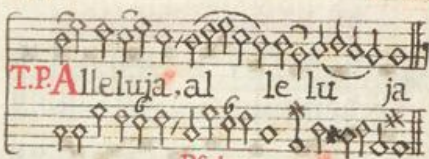 T.P. Alleluja, al le lu ja
6 6